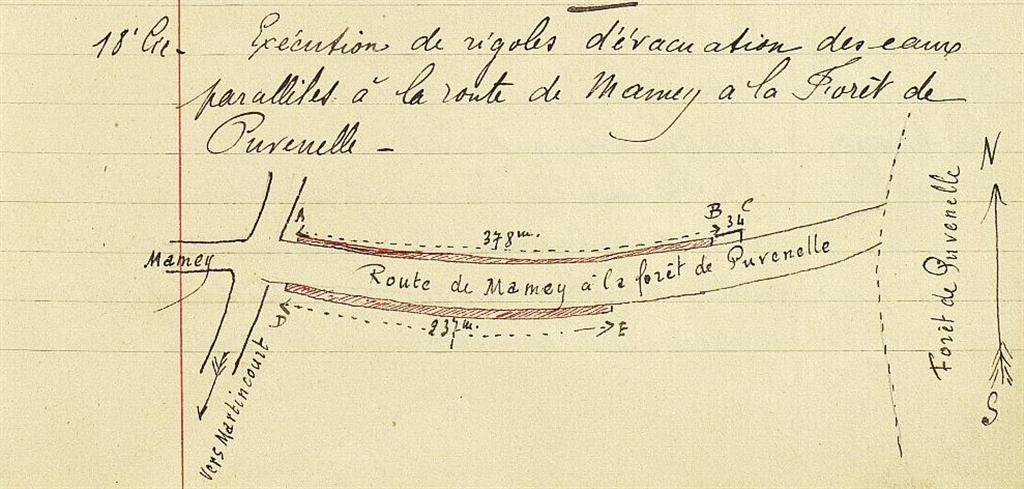 18e Cie - Exécution de rigoles d'évacuation des eaux
parallèles à la route de Mamey a la Forêt de
Puvenelle -
N
A
378m.
B
34
C
Mamey
Route de Mamey à la forêt de Puvenelle
Forêt de Puvenelle
D
237m.
E
Vers Martincourt
S